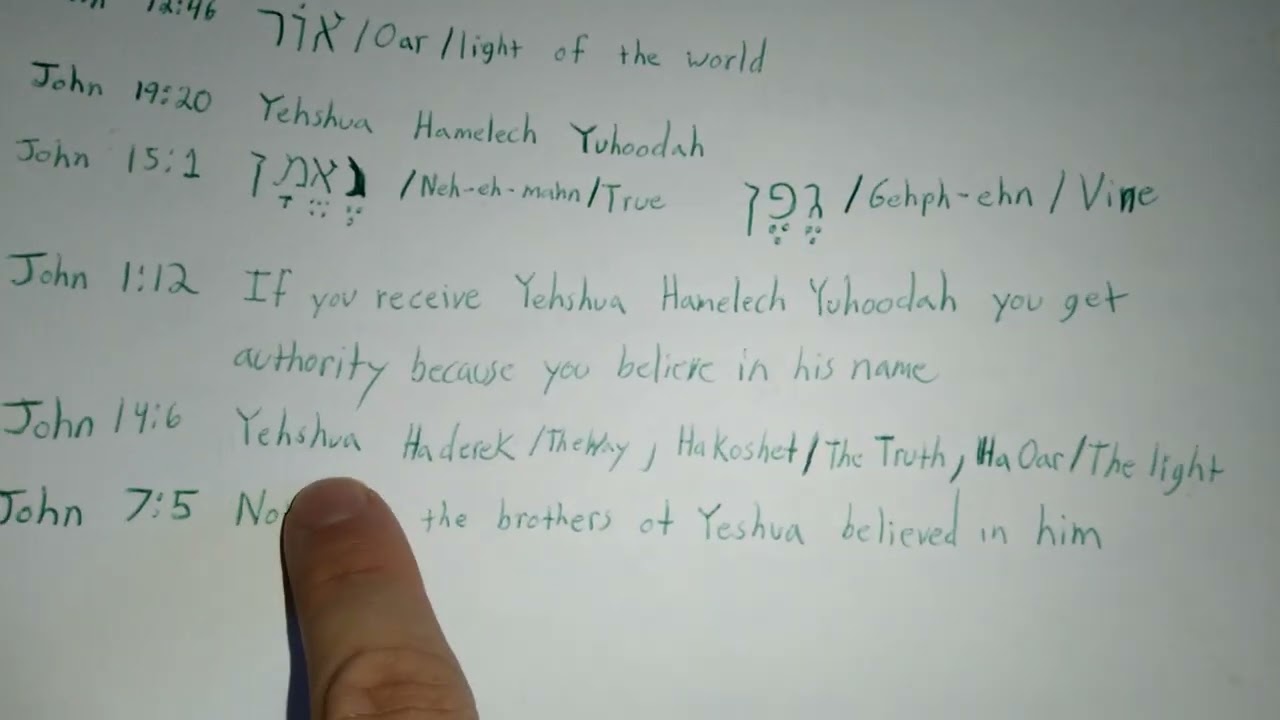 12:46 אוֹר / Oar / light of the world
John 19:20 Yehshua Hamelech Yuhoodah
John 15:1 נֶאֱמָן / Neh-eh-mahn / True גֶפֶן / Gehph-ehn / Vine
John 1:12 If you receive Yehshua Hamelech Yuhoodah you get
authority because you believe in his name
John 14:6 Yehshua Haderek / The Way, Ha Koshet / The Truth, Ha Oar / The light
John 7:5 the brothers of Yeshua believed in him